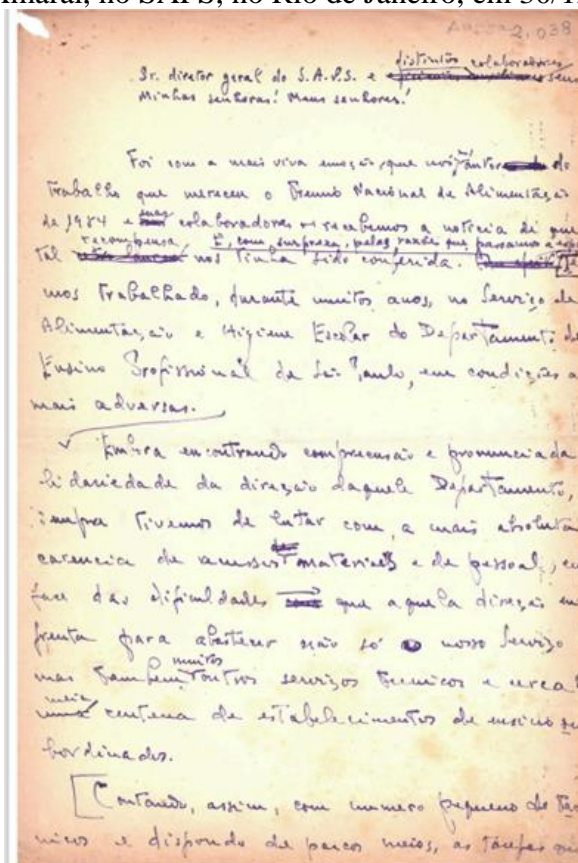 Amaral, no SAPS, no Rio de Janeiro, em 30/1
2,038
distintos colaboradores
Sr. diretor geral do S.A.P.S. e seus
Minhas senhoras! Meus senhores!
Foi com a mais viva emoção, que nós autores do
trabalho que mereceu o Premio Nacional de Alimentação
de 1954 e colaboradores recebemos a noticia de que
recompensa E, com surpreza, pelas razões que passamos a
tal nos tinha sido conferida.
mos trabalhado, durante muitos anos, no Serviço de
Alimentação e Higiene Escolar do Departamento de
Ensino Profissional de São Paulo, em condições a
mais adversas.
Embora encontrando compreensão e pronunciada
lidariedade da direção daquele Departamento,
sempre tivemos de lutar com a mais absoluta
carencia de recursos materiais e de pessoal, em
face das dificuldades que aquela direção en
frenta para abastecer não só o nosso Serviço
muitos
mas tambem outros serviços tecnicos e cerca
meia
centena de estabelecimentos de ensino su
bordinados.
[Contando, assim, com numero pequeno de téc
nicos e dispondo de parcos meios, as tarefas